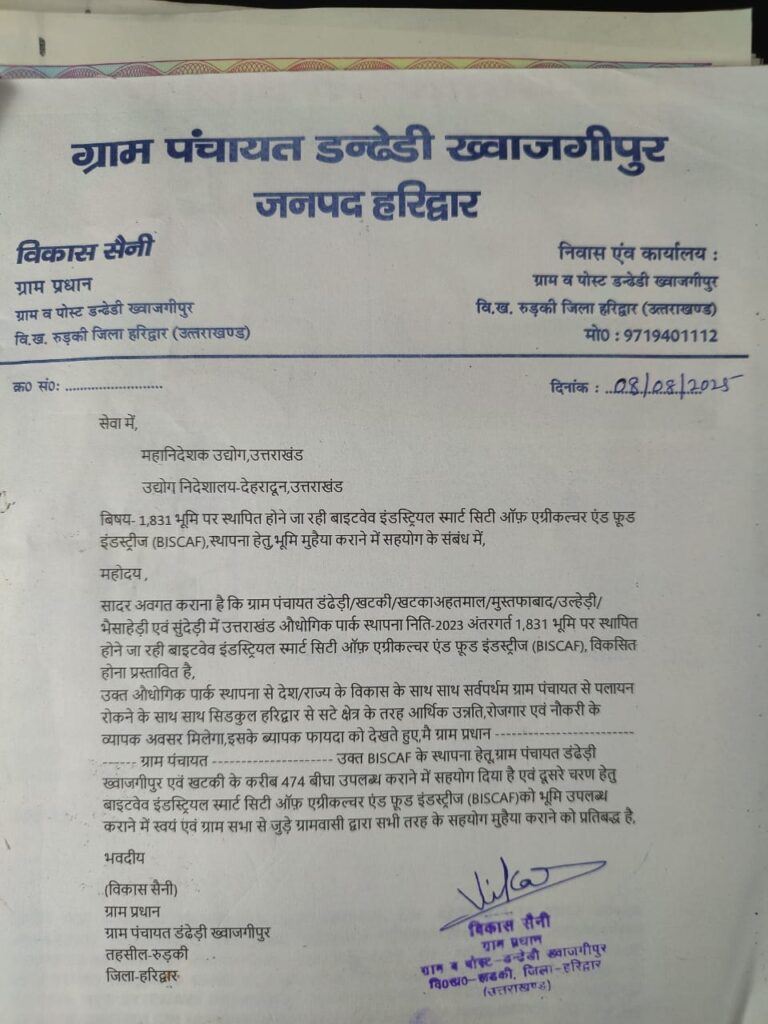 ग्राम पंचायत डन्ढेडी ख्वाजगीपुर
जनपद हरिद्वार
विकास सैनी
ग्राम प्रधान
ग्राम व पोस्ट डन्ढेडी ख्वाजगीपुर
वि.ख. रुड़की जिला हरिद्वार (उत्तराखण्ड)
निवास एंव कार्यालय :
ग्राम व पोस्ट डन्ढेडी ख्वाजगीपुर
वि.ख. रुड़की जिला हरिद्वार (उत्तराखण्ड)
मो0 : 9719401112
क्र0 सं0: ........................
दिनांक : ..08/08/2025
सेवा में,
महानिदेशक उद्योग,उत्तराखंड
उद्योग निदेशालय-देहरादून,उत्तराखंड
बिषय- 1,831 भूमि पर स्थापित होने जा रही बाइटवेव इंडस्ट्रियल स्मार्ट सिटी ऑफ़ एग्रीकल्चर एंड फ़ूड
इंडस्ट्रीज (BISCAF),स्थापना हेतु,भूमि मुहैया कराने में सहयोग के संबंध में,
महोदय,
सादर अवगत कराना है कि ग्राम पंचायत डंढेड़ी/खटकी/खटकाअहतमाल/मुस्तफाबाद/उल्हेड़ी/
भैसाहेड़ी एवं सुंदेड़ी में उत्तराखंड औधोगिक पार्क स्थापना निति-2023 अंतरगर्त 1,831 भूमि पर स्थापित
होने जा रही बाइटवेव इंडस्ट्रियल स्मार्ट सिटी ऑफ़ एग्रीकल्चर एंड फ़ूड इंडस्ट्रीज (BISCAF), विकसित
होना प्रस्तावित है,
उक्त औधोगिक पार्क स्थापना से देश/राज्य के विकास के साथ साथ सर्वपर्थम ग्राम पंचायत से पलायन
रोकने के साथ साथ सिडकुल हरिद्वार से सटे क्षेत्र के तरह आर्थिक उन्नति,रोजगार एवं नौकरी के
व्यापक अवसर मिलेगा,इसके ब्यापक फायदा को देखते हुए,मै ग्राम प्रधान -------------------------
------ ग्राम पंचायत --------------------- उक्त BISCAF के स्थापना हेतू,ग्राम पंचायत डंढेड़ी
ख्वाजगीपुर एवं खटकी के करीब 474 बीघा उपलब्ध कराने में सहयोग दिया है एवं दूसरे चरण हेतु
बाइटवेव इंडस्ट्रियल स्मार्ट सिटी ऑफ़ एग्रीकल्चर एंड फ़ूड इंडस्ट्रीज (BISCAF)को भूमि उपलब्ध
कराने में स्वयं एवं ग्राम सभा से जुड़े ग्रामवासी द्वारा सभी तरह के सहयोग मुहैया कराने को प्रतिबद्ध है,
भवदीय
(विकास सैनी)
ग्राम प्रधान
ग्राम पंचायत डंढेड़ी ख्वाजगीपुर
तहसील-रुड़की
जिला-हरिद्वार
Vikas
विकास सैनी
ग्राम प्रधान
ग्राम व पोस्ट-डन्ढेडी ख्वाजगीपुर
वि0ख0-रूड़की, जिला-हरिद्वार
(उत्तराखण्ड)